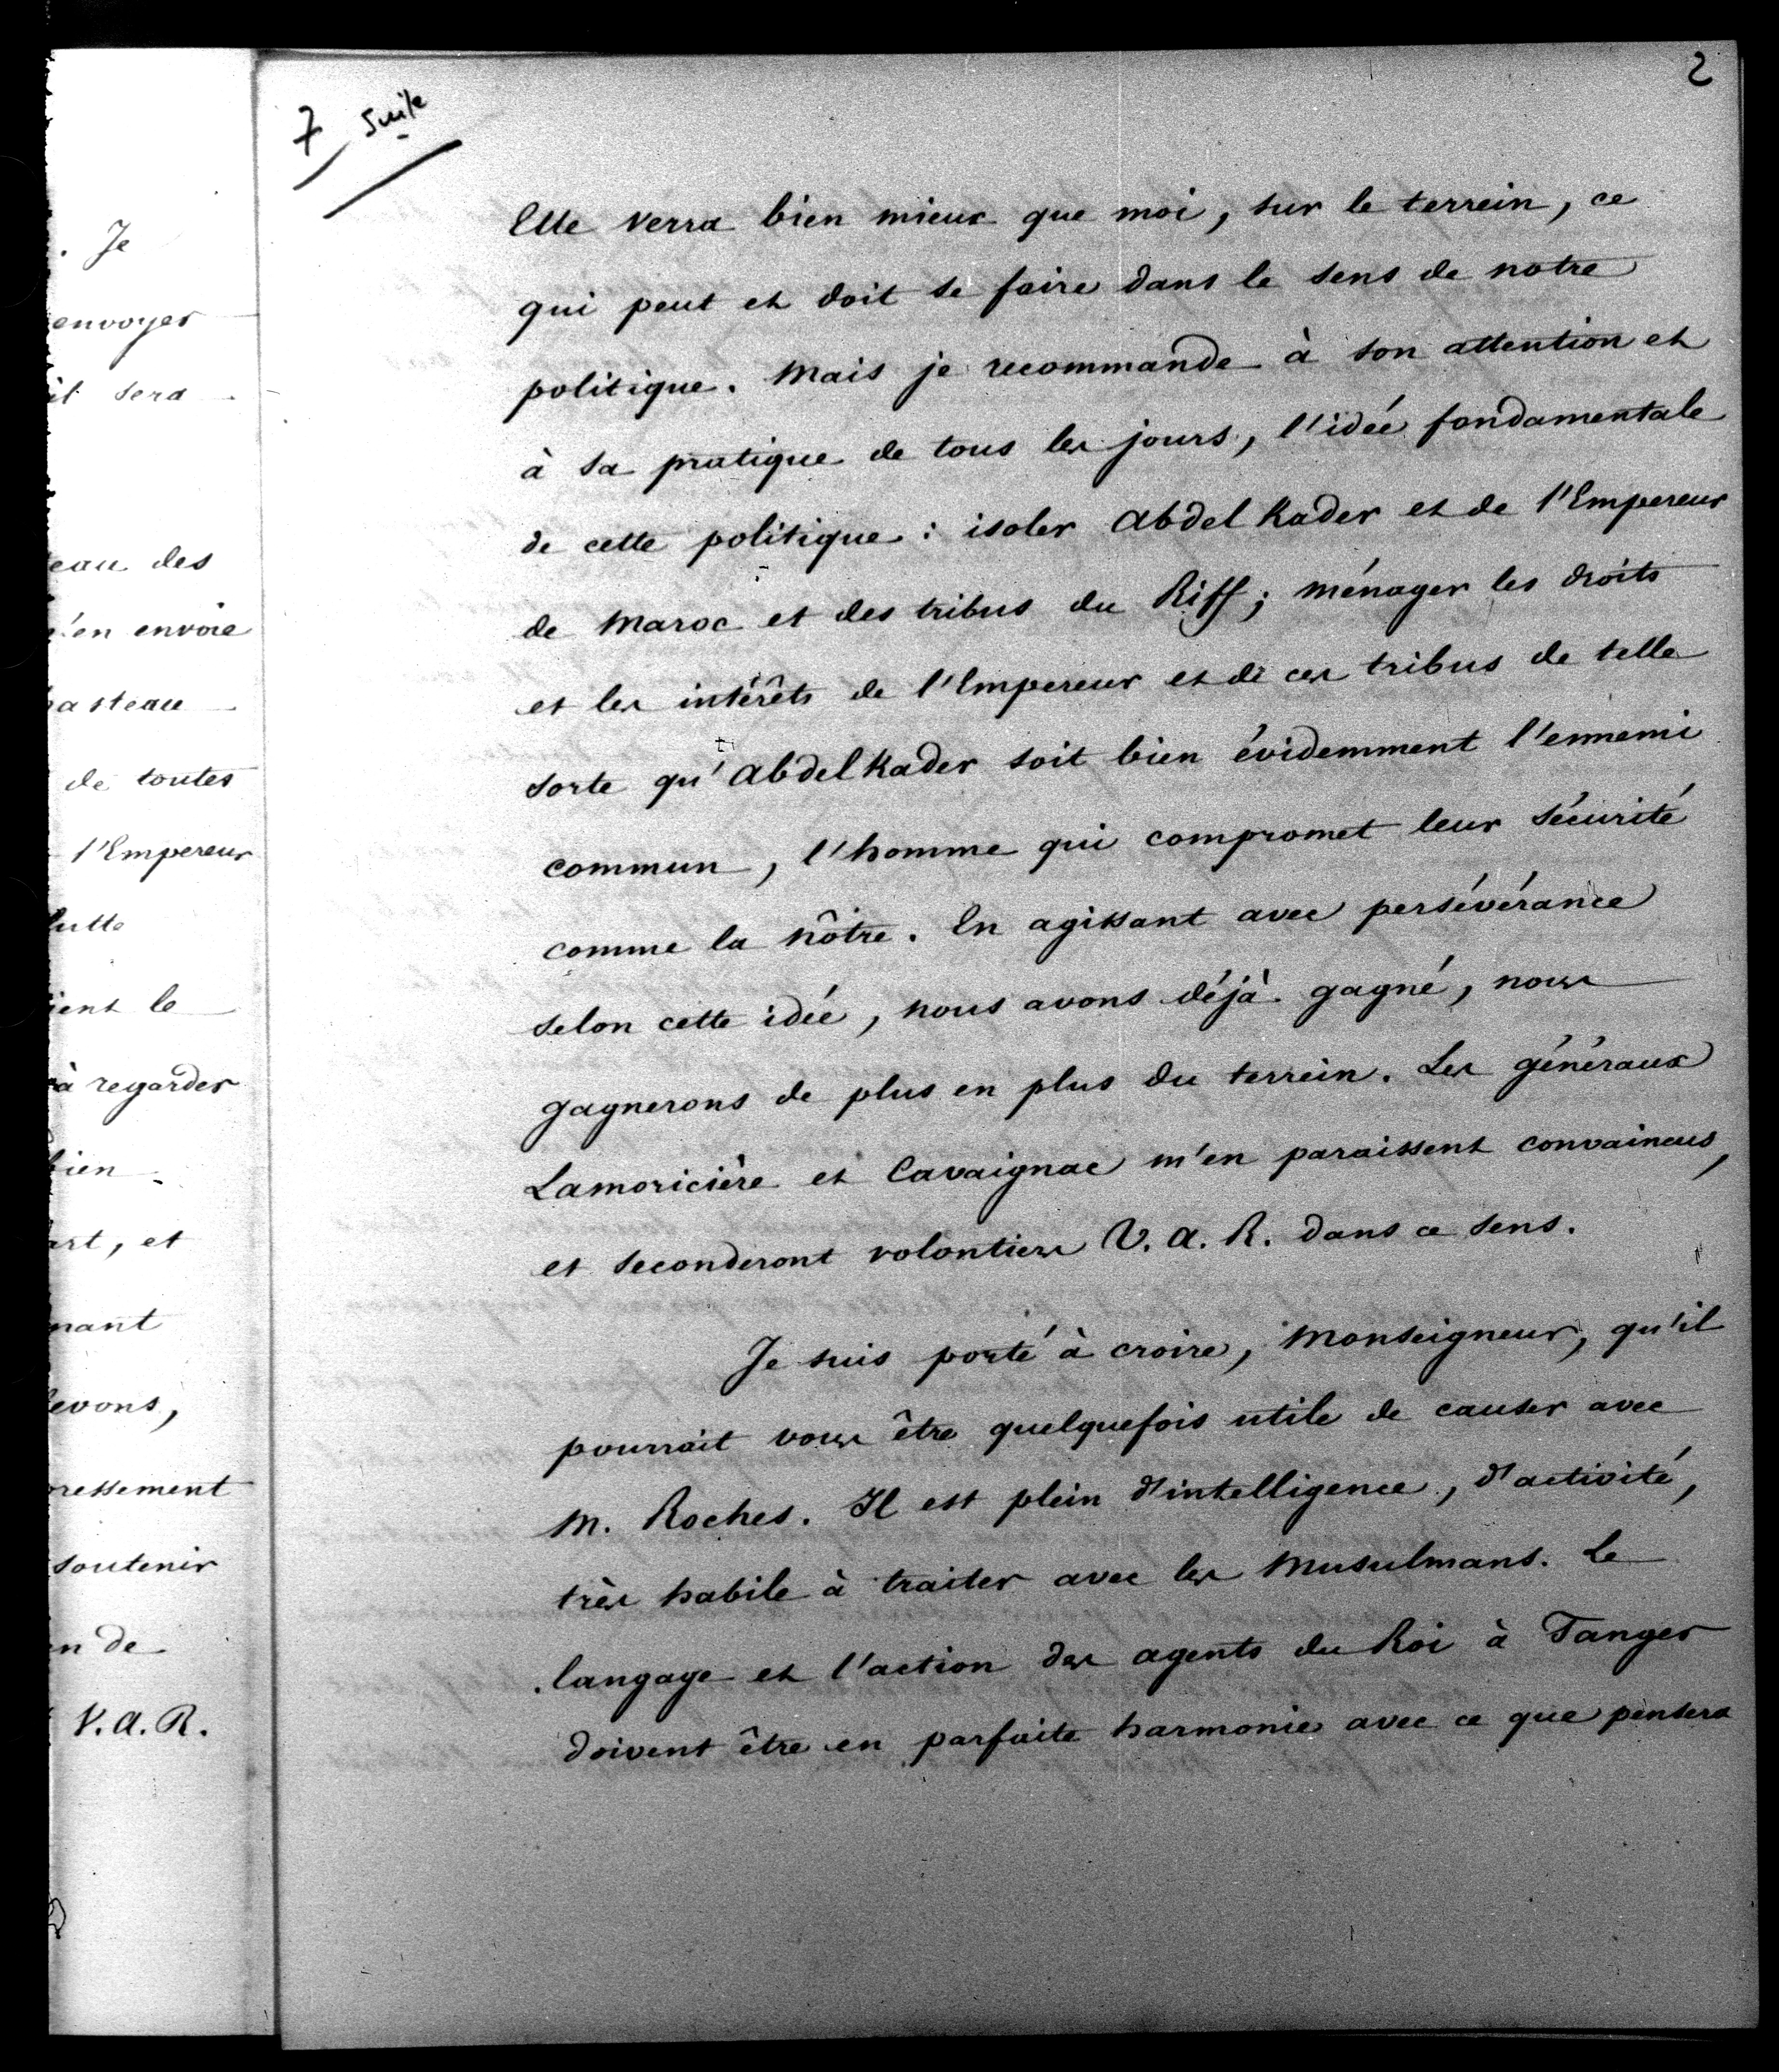 . Je
envoyer
il sera
eau des
n'en envoie
hasteau
de toutes
l'Empereur
lutte
ient le
à regarder
bien
art, et
nant
levons,
ressement
soutenir
en de
V. A. R.
2
7 suite
Elle verra bien mieux que moi, sur le terrein, ce
qui peut et doit se faire dans le sens de notre
politique. Mais je recommande à son attention et
à sa pratique de tous les jours, l'idée fondamentale
de cette politique : isoler Abdel Kader et de l'Empereur
de Maroc et des tribus du Riff ; ménager les droits
et les intérêts de l'Empereur et de ces tribus de telle
sorte qu'Abdel Kader soit bien évidemment l'ennemi
commun, l'homme qui compromet leur sécurité
comme la nôtre. En agissant avec persévérance
selon cette idée, nous avons déjà gagné, nous
gagnerons de plus en plus du terrein. Les généraux
Lamoricière et Cavaignac m'en paraissent convaincus,
et seconderont volontiers V. A. R. dans ce sens.
Je suis porté à croire, Monseigneur, qu'il
pourrait vous être quelquefois utile de causer avec
M. Roches. Il est plein d'intelligence, d'activité,
très habile à traiter avec les Musulmans. Le
langage et l'action des agents du Roi à Tanger
doivent être en parfaite harmonie avec ce que pensera